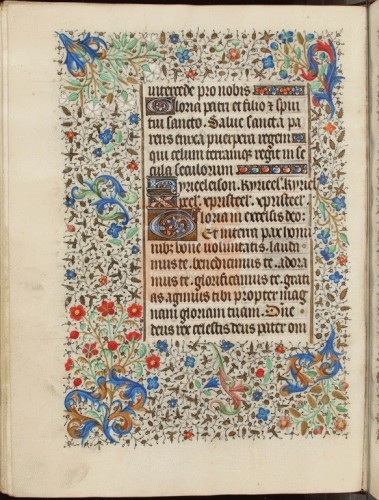 intercede pro nobis
Gloria patri et filio et spiri
tui sancto. Salve sancta pa
rens enixa puerpera regem
qui celum terramque regit in se
cula seculorum
Kyrieeleison. kyrieel. kyrieel
xpristeel. xpristeel. xpristeel.
Gloria in excelsis deo:
Et in terra pax homi
nibus bone voluntatis. lauda
mus te. benedicimus te. adora
mus te. glorificamus te. grati
as agimus tibi propter mag
nam gloriam tuam. Domine
deus rex celestis deus pater om